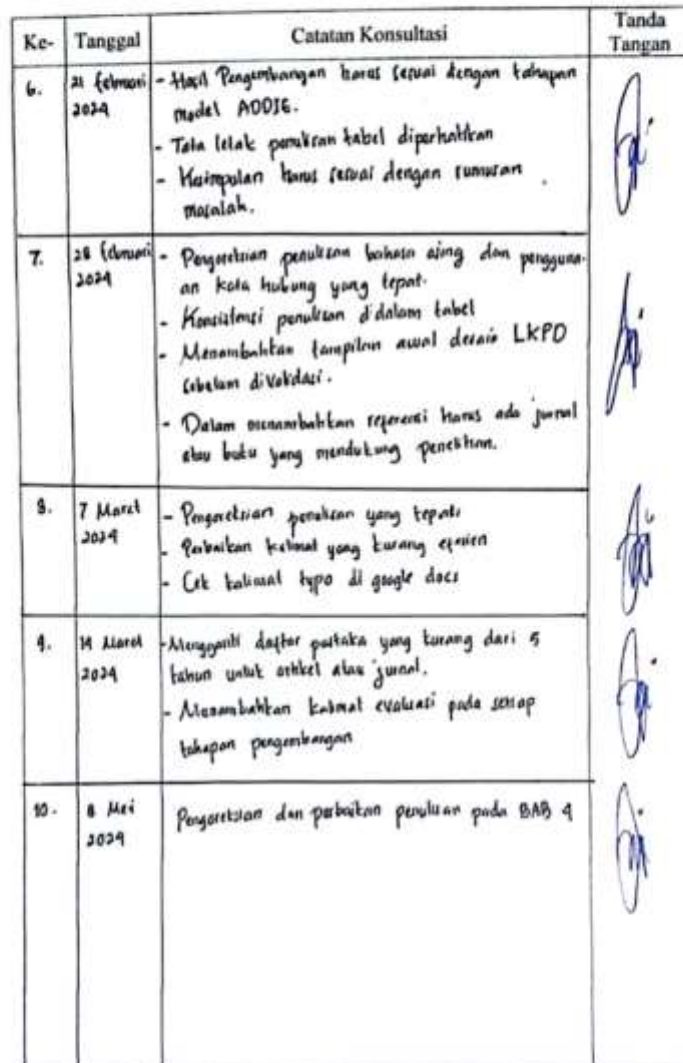 Ke- Tanggal Catatan Konsultasi Tanda
Tangan
6. 21 februari - Hasil Pengembangan harus sesuai dengan tahapan
2024 model ADDIE.
- Tata letak penulisan tabel diperhatikan
- Kesimpulan harus sesuai dengan rumusan
masalah.
7. 28 februari - Pengoreksian penulisan bahasa asing dan pengguna-
2024 an kata hubung yang tepat.
- Konsistensi penulisan didalam tabel
- Menambahkan tampilan awal desain LKPD
sebelum divalidasi.
- Dalam menambahkan referensi harus ada jurnal
atau buku yang mendukung penelitian.
8. 7 Maret - Pengoreksian penulisan yang tepat
2024 - Perbaikan kalimat yang kurang efisien
- Cek kalimat typo di google docs
9. 14 Maret - Mengganti daftar pustaka yang kurang dari 5
2024 tahun untuk artikel atau jurnal.
- Menambahkan kalimat evaluasi pada setiap
tahapan pengembangan
10. 8 Mei Pengoreksian dan perbaikan penulisan pada BAB 4
2024